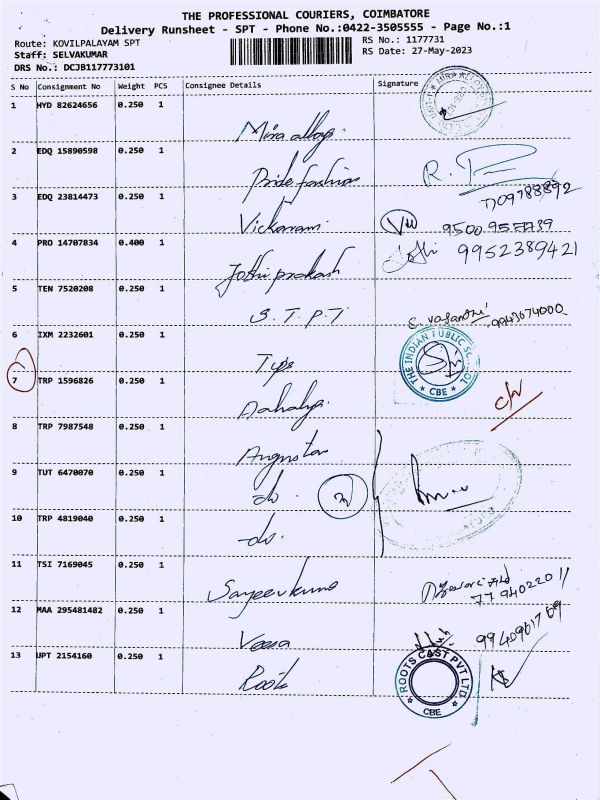 THE PROFESSIONAL COURIERS, COIMBATORE
Delivery Runsheet - SPT - Phone No.:0422-3505555 - Page No.:1
Route: KOVILPALAYAM SPT
RS No.: 1177731
Staff: SELVAKUMAR
RS Date: 27-May-2023
DRS No.: DCJB117773101
S No Consignment No Weight PCS Consignee Details Signature
1 HYD 82624656 0.250 1
Mira alloys.
2 EDQ 15890598 0.250 1
Pride fashion R.
3 EDQ 23814473 0.250 1
Vickarami 9500 957739
4 PRO 14707834 0.400 1 9952389421
Jothi prakash
5 TEN 7520208 0.250 1
S.T.P.T S. Vasanthi 9943674000
6 IXM 2232601 0.250 1
Tips THE INDIAN PUBLIC SCHOOL
CBE
7 TRP 1596826 0.250 1
8 TRP 7987548 0.250 1
9 TUT 6470070 0.250 1
do.
10 TRP 4819040 0.250 1
-do.
11 TSI 7169045 0.250 1
Sanjeevkumar
12 MAA 295481482 0.250 1
13 UPT 2154160 0.250 1
Roots ROOTS CAST PVT LTD
CBE